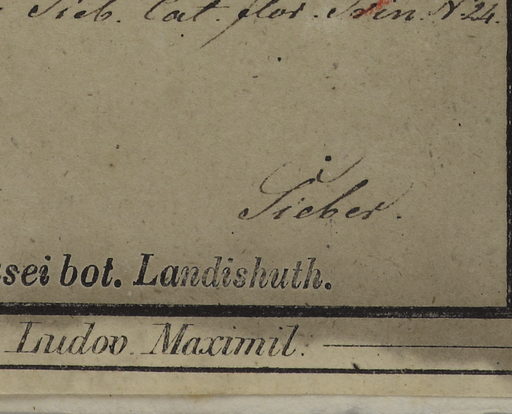 Sieb. Cat. flor. Trin. N 24.
Sieber.
sei bot. Landishuth.
Ludov. Maximil.